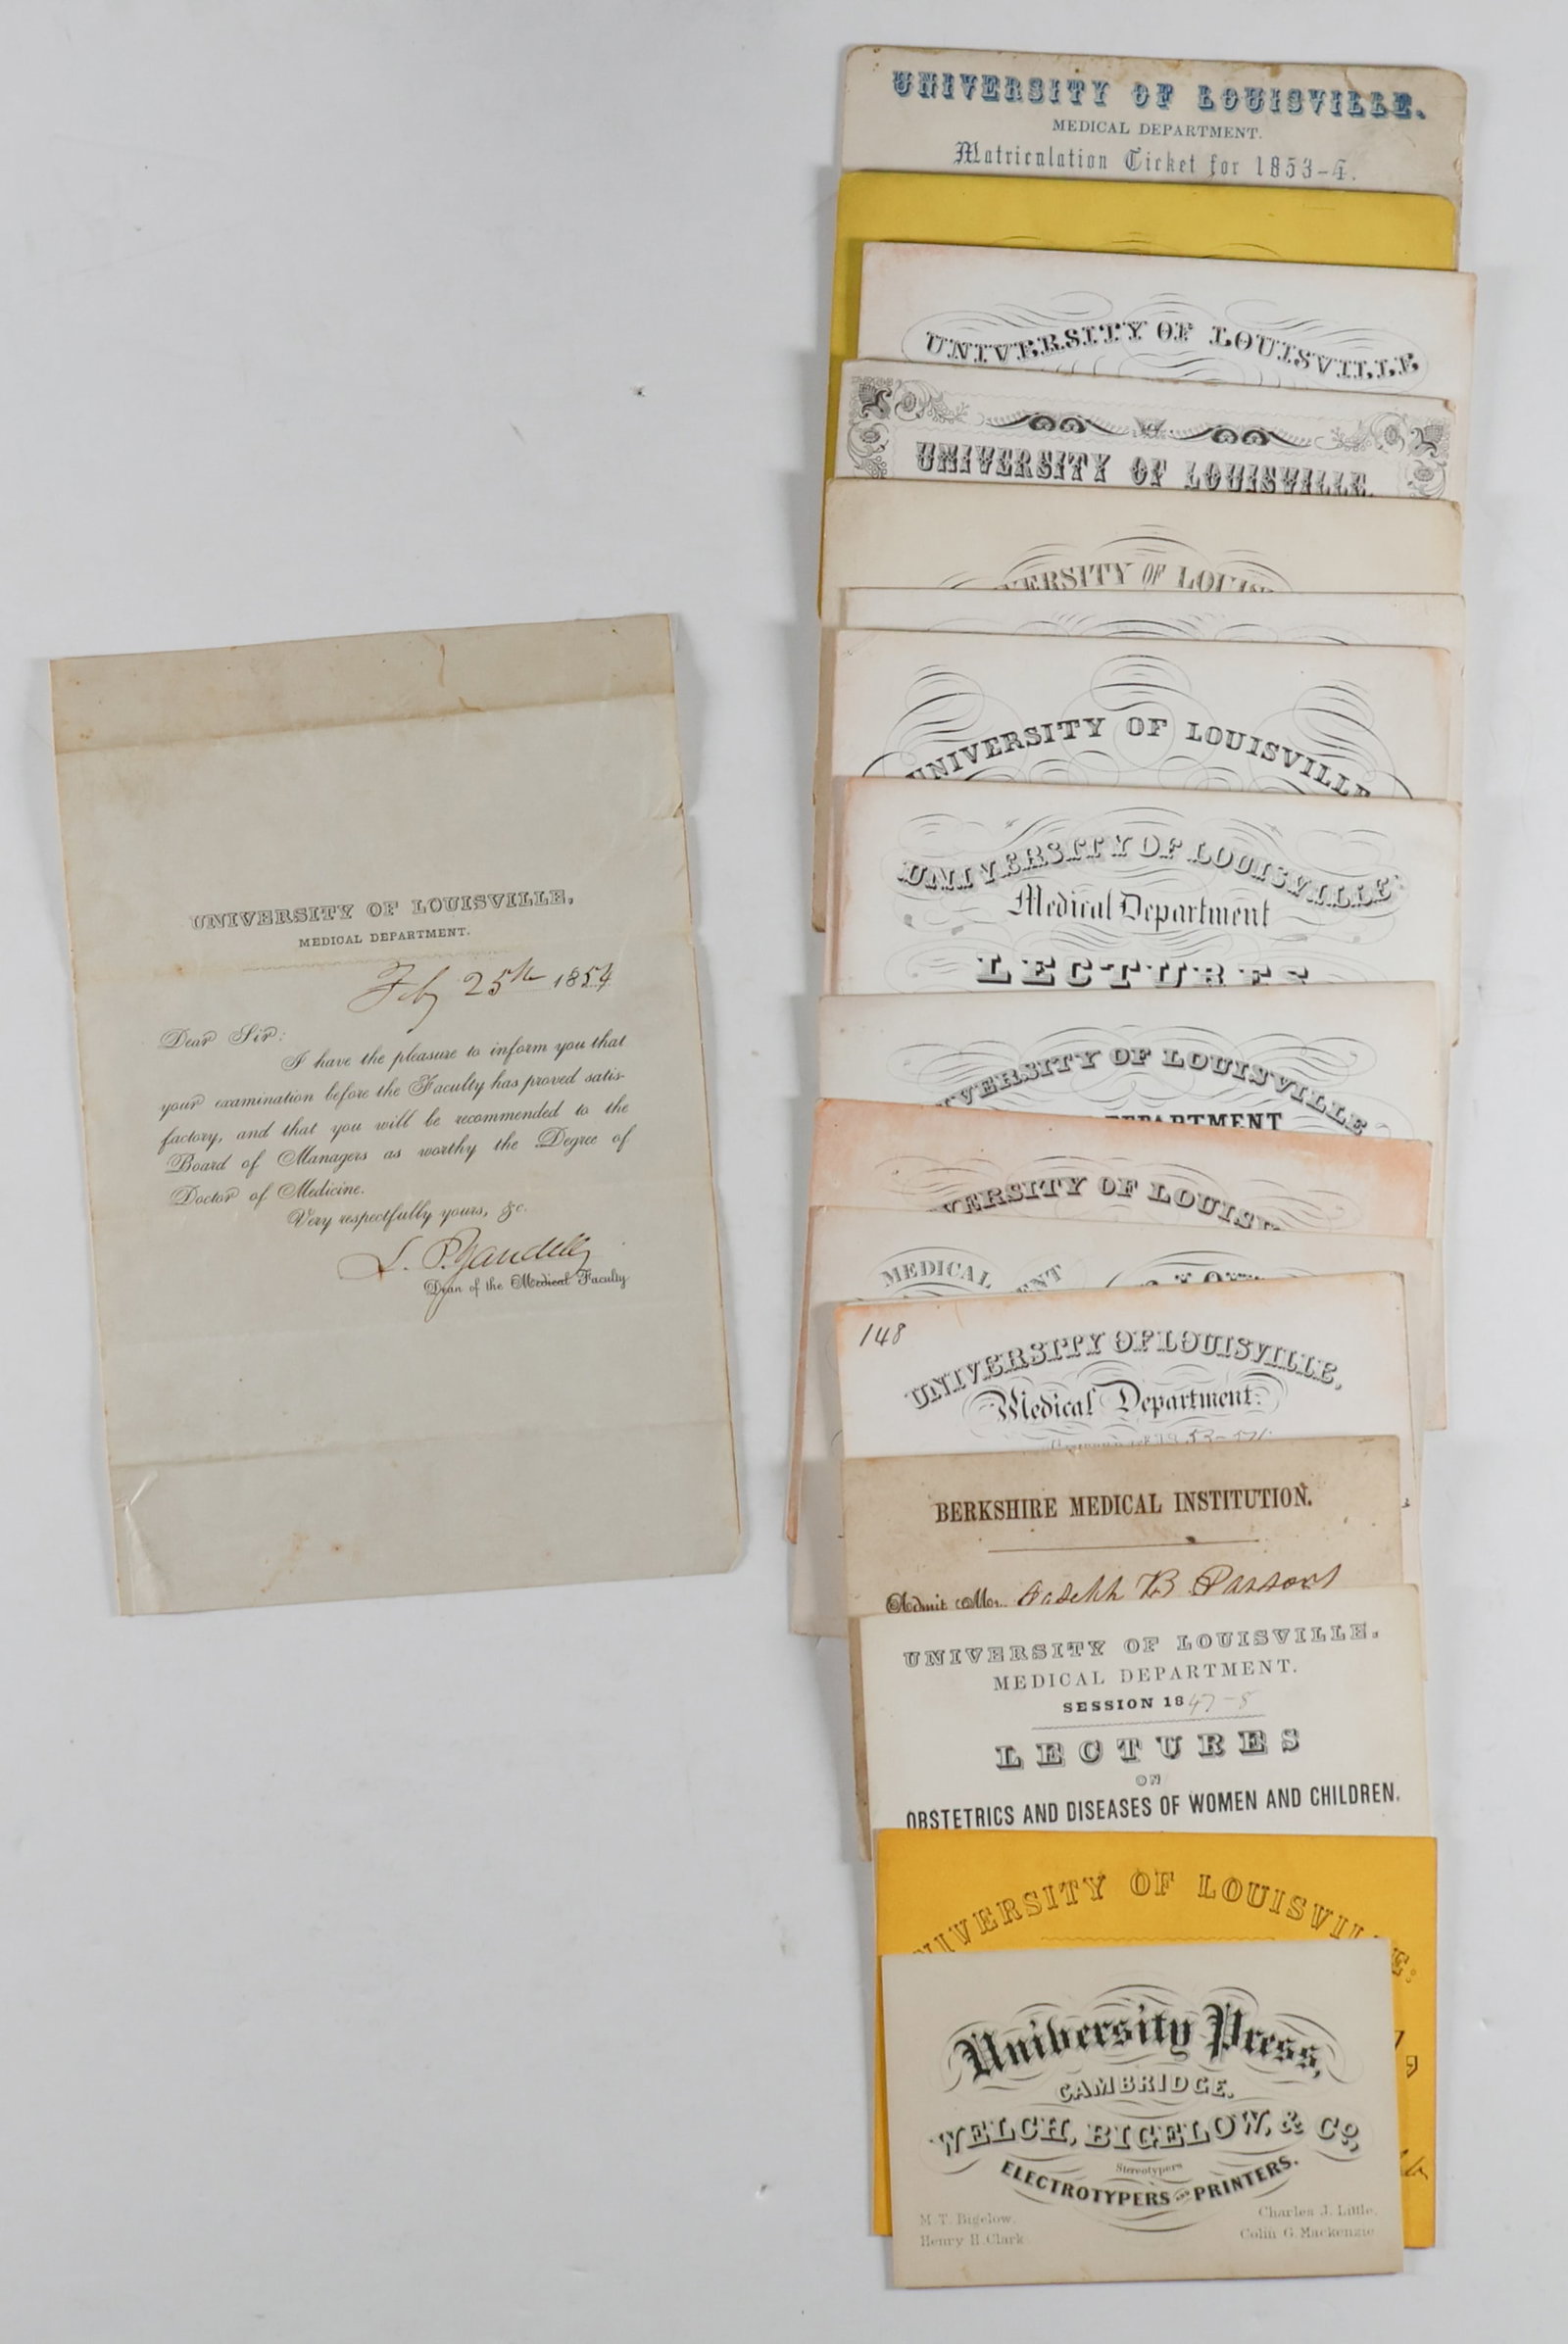 UNIVERSITY OF LOUISVILLE,
MEDICAL DEPARTMENT.
Feby 25th 1854
Dear Sir:
I have the pleasure to inform you that
your examination before the Faculty has proved satis-
factory, and that you will be recommended to the
Board of Managers as worthy the Degree of
Doctor of Medicine.
Very respectfully yours, &c.
L. P. Yandell
Dean of the Medical Faculty
UNIVERSITY OF LOUISVILLE.
MEDICAL DEPARTMENT.
Matriculation Ticket for 1853-4.
UNIVERSITY OF LOUISVILLE
UNIVERSITY OF LOUISVILLE.
VERSITY OF LOUIS
UNIVERSITY OF LOUISVILLE
UNIVERSITY OF LOUISVILLE
Medical Department
LECTURES
IVERSITY OF LOUISVILLE
DEPARTMENT
VERSITY OF LOUIS
MEDICAL
ENT
148
UNIVERSITY OF LOUISVILLE,
Medical Department.
BERKSHIRE MEDICAL INSTITUTION.
Admit Mr. Joseph B Parsons
UNIVERSITY OF LOUISVILLE.
MEDICAL DEPARTMENT.
SESSION 1847-8
LECTURES
ON
OBSTETRICS AND DISEASES OF WOMEN AND CHILDREN.
NIVERSITY OF LOUISVILLE:
University Press,
CAMBRIDGE.
WELCH, BIGELOW, & Co.
Stereotypers
ELECTROTYPERS AND PRINTERS.
M. T. Bigelow.
Henry H. Clark
Charles J. Little.
Colin G. Mackenzie